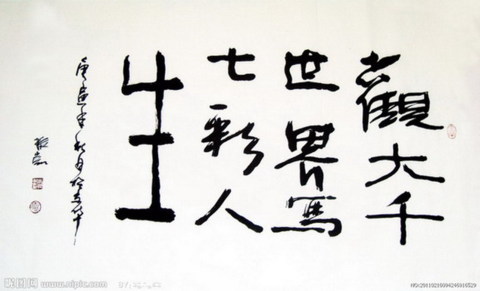 觀大千
世界寫
七彩人
生
庚寅年秋月於京华
昵图网 www.nipic.com